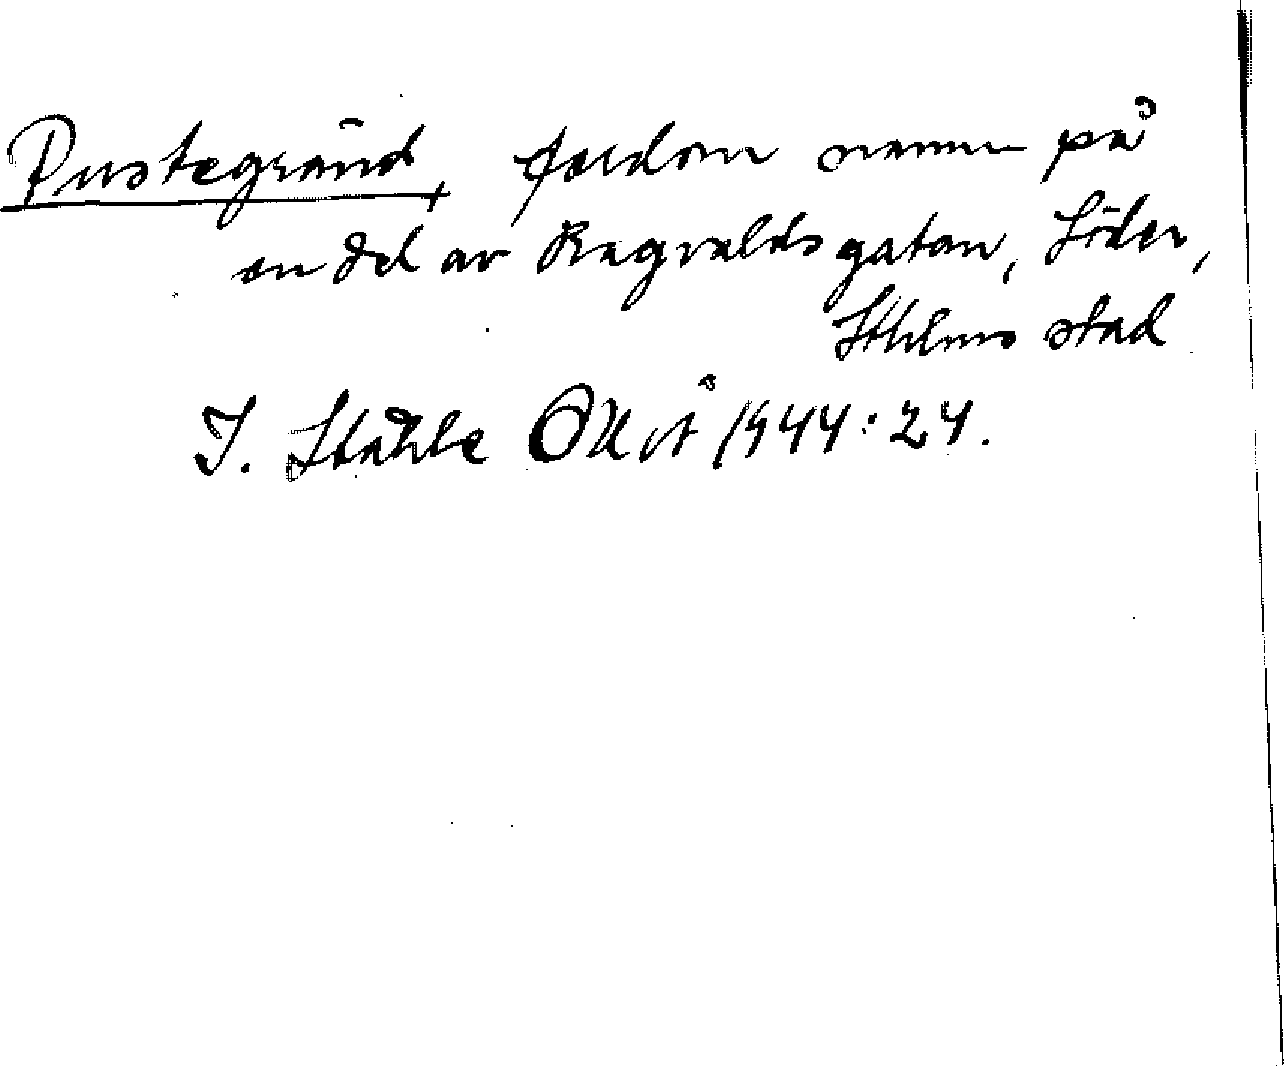 Pustegränd, fordom namn på
en del av Ragvaldsgatan, Söder,
Sthlms stad
I. Ståhle OUÅ 1944:24.